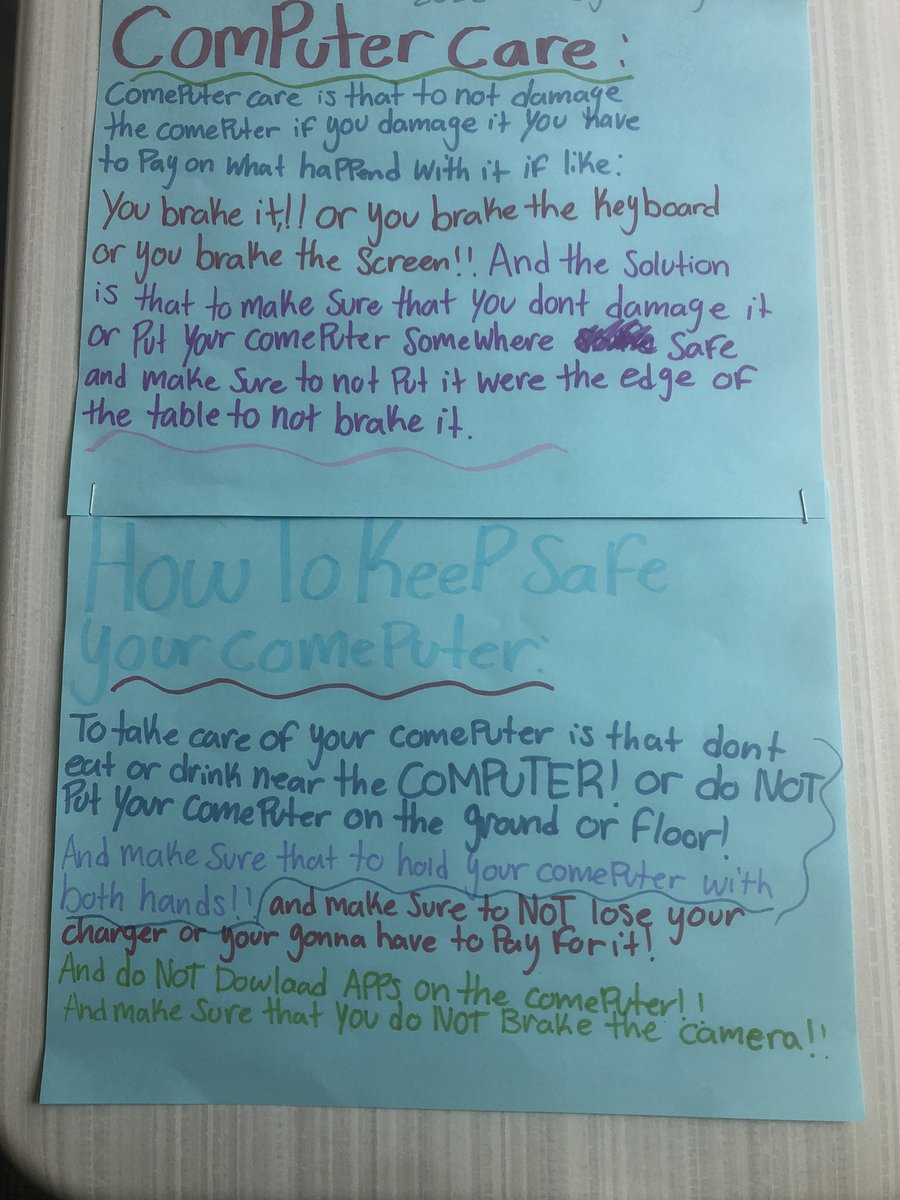 ComPuter Care:
ComePuter care is that to not damage
the comePuter if you damage it you have
to Pay on what happend with it if like:
You brake it,!! or you brake the Keyboard
or you brake the Screen!! And the Solution
is that to make Sure that you dont damage it
or Put Your comePuter SomeWhere Safe
and make Sure to not Put it were the edge of
the table to not brake it.
How To KeeP Safe
your comePuter:
To take care of your comePuter is that dont
eat or drink near the COMPUTER! or do NOT
Put Your comePuter on the ground or Floor!
And make Sure that to hold your comePuter with
both hands!! and make Sure to NOT lose your
charger or your gonna have to Pay For it!
And do NOT Dowload APPS on the comePuter!!
And make Sure that You do NOT Brake the camera!!